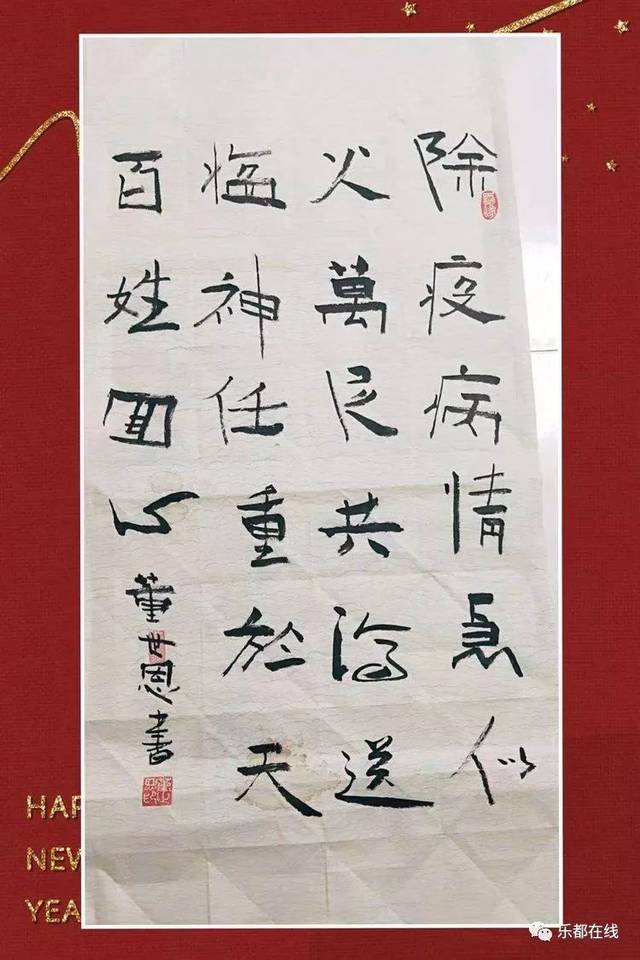 除疫病情急似
火萬民共送
瘟神任重於天
百姓心
董世恩書
HAP
NEW
YEA
乐都在线